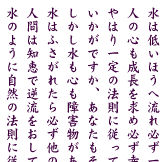 水は低いほうへ流れ必ず
人の心も成長を求め必ず幸
やはり一定の法則に従って
いかがですか、あなたもそ
しかし水も心も障害があ
水はふさがれたら必ず他の
人間は知恵で逆流をおして
水のように自然の法則に従